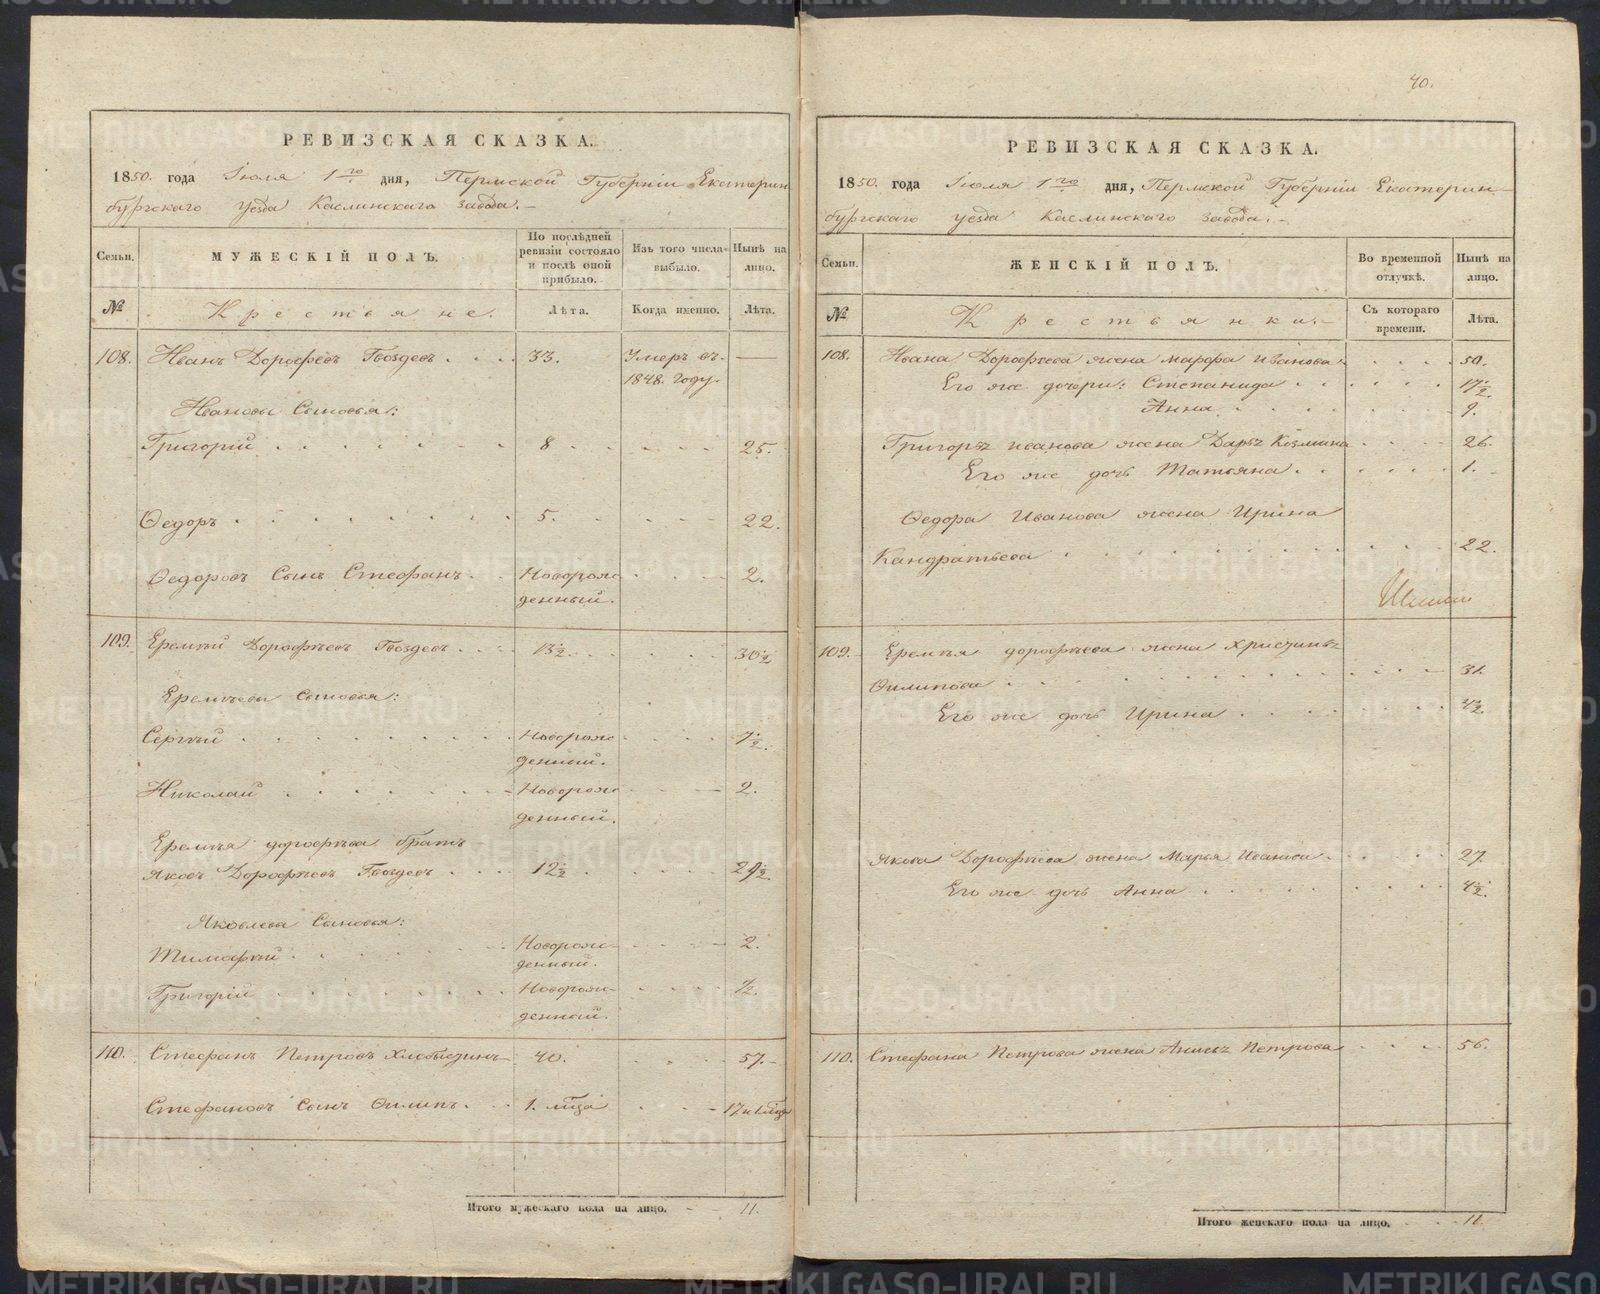 40.
РЕВИЗСКАЯ СКАЗКА.
1850. года Іюля 1го дня, Пермской Губерніи Екатерин
бургскаго уезда Каслинскаго завода.
Семьи.
МУЖЕСКІЙ ПОЛЪ.
По послѣдней ревизіи состояло и послѣ оной прибыло.
Изъ того числа выбыло.
Нынѣ на лицо.
№
Крестьяне.
Лѣта.
Когда именно.
Лѣта.
108. Иванъ Дорофѣевъ Гвоздевъ . . . . 33. Умеръ въ —
1848. году.
Ивановы Сыновья:
Григорій 8 25.
Ѳедоръ 5. 22.
Ѳедоровъ Сынъ Стефанъ. Новорож 2.
денный.
109. Еремѣй Дорофѣевъ Гвоздевъ 13½ 30½
Еремѣевы Сыновья:
Сергѣй Новорож 7½.
денный.
Николай Новорож 2.
денный.
Еремѣя дорофѣева братъ
Яковъ Дорофѣевъ Гвоздевъ 12½ 29½
Яковлева Сыновья:
Тимофѣй Новорож 2.
денный.
Григорій Новорож ½.
денный.
110. Стефанъ Петровъ Хлобыстинъ 40. 57.
Стефановъ сынъ Филипъ. 1. мца 17 и 1 мца
Итого мужескаго пола на лицо. 11.
РЕВИЗСКАЯ СКАЗКА.
1850. года Іюля 1го дня, Пермской Губерніи Екатерин-
бургскаго уезда Каслинскаго завода.
Семьи.
ЖЕНСКІЙ ПОЛЪ.
Во временной отлучкѣ.
Нынѣ на лицо.
№
Крестьянки.
Съ котораго времени.
Лѣта.
108. Ивана Дорофѣева жена марфа Иванова 50.
Его же дочери: Степанида 17½.
Анна 9.
Григорья иванова жена Дарья Козмина 26.
Его же дочь Татьяна 1.
Ѳедора Иванова жена Ирина
Кандратьева 22.
109. Еремѣя дорофѣева жена Христинья
Филипова 31.
Его же дочь Ирина 4½.
Якова Дорофѣева жена Марья Иванова 27.
Его же дочь Анна 4½.
110. Стефана Петрова жена Анисья Петрова 56.
Итого женскаго пола на лицо. 11.
METRIKI.GASO-URAL.RU